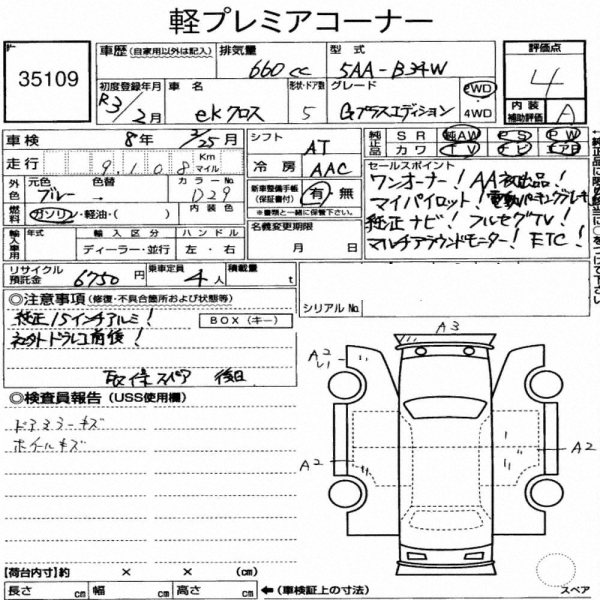 軽プレミアコーナー
35109
車歴 (自家用以外は記入) 排気量 660cc 型式 5AA-B34W 評価点 4
初度登録年月 R3/2月 車名 eKクロス 形状・ドア数 5 グレード Gプラスエディション 2WD ・4WD 内装補助評価 A
車検 8年 2/25月
走行 9,108 Km マイル
外色 元色 ブルー 色替 → カラーNo. D29
燃料 ガソリン・軽油・( ) 内装色
輸入車用 年式 輸入区分 ディーラー・並行 ハンドル 左・右
リサイクル預託金 6750円 乗車定員 4人 積載量 t
シフト AT
冷房 AAC
新車整備手帳(保証書付) 有・無
※書類と一緒に保管下さい。
名義変更期限
月 日
純正品 SR 純AW PS PW
カワ TV ナビ エアB
セールスポイント
ワンオーナー! AA初出品!
マイパイロット! 電動パーキングブレーキ
純正ナビ! フルセグTV!
マルチアラウンドモニター! ETC!
シリアルNo.
◎注意事項 (修復・不具合箇所および状態等)
純正15インチアルミ! BOX(キー)
社外ドラレコ前後!
取保スペア 後日
◎検査員報告 (USS使用欄)
ドアミラーキズ
ホイールキズ
A3
A2
A2
A2
スペア
【荷台内寸】約 × × (cm)
長さ cm 幅 cm 高さ cm ←(車検証上の寸法)